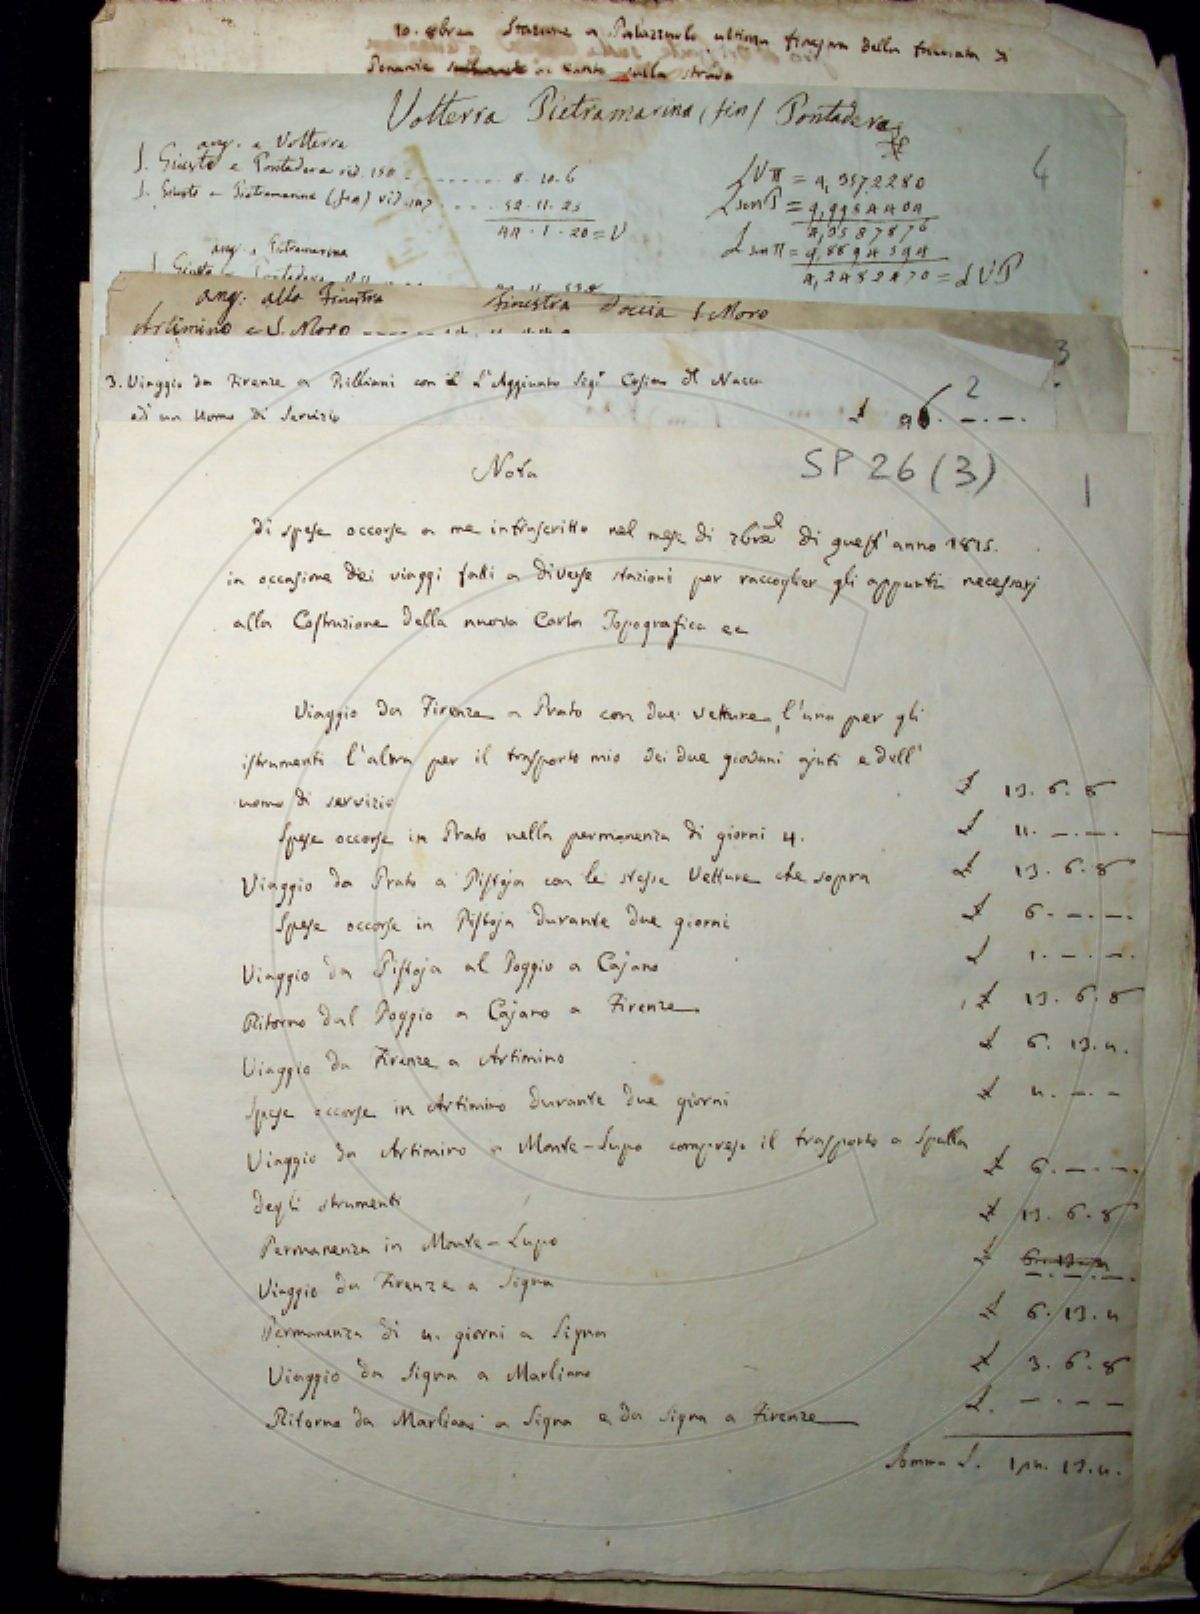 10. 8bre Stazione a Palazzuolo ultima finestra della facciata di
Ponente sulla strada
Volterra Pietramarina (fin) Pontadera
4
ang. a Volterra
S. Giusto e Pontadera rid. 150 8. 10. 6
S. Giusto e Pietramarina (fin) rid. 52. 11. 25
44 . 1 . 20 = V
L VΠ = 4,3572280
L sen P = 9,9984404
4,3587876
L sen Π = 9,8894594
4,2482470 = L VP
ang. a Pietramarina
S. Giusto e Pontadera
ang. alla Finestra Finestra Doccia S. Moro
Artimino e S. Moro
3
3. Viaggio da Firenze a con il L'Aggiunto Sigr Cosimo Del Nacca
ed un Uomo di Servizio £
2
Nota
SP 26 (3)
1
di spese occorse a me infrascritto nel mese di 7bre di quest' anno 1815.
in occasione dei viaggi fatti a diverse stazioni per raccoglier gli appunti necessarj
alla Costruzione della nuova Carta Topografica ec
Viaggio da Firenze a Prato con due vetture, l'una per gli
istrumenti l'altra per il trasporto mio dei due giovani ajuti e dell'
uomo di servizio £ 13. 6. 8
Spese occorse in Prato nella permanenza di giorni 4. £ 4. —. —.
Viaggio da Prato a Pistoja con le stesse Vetture che sopra £ 13. 6. 8
Spese occorse in Pistoja durante due giorni £ 6. —. —.
Viaggio da Pistoja al Poggio a Cajano £ 1. —. —.
Ritorno dal Poggio a Cajano a Firenze £ 13. 6. 8
Viaggio da Firenze a Artimino £ 6. 13. 4.
Spese occorse in Artimino durante due giorni £ 4. —. —
Viaggio da Artimino a Monte-Lupo compreso il trasporto a Spalla
degli strumenti £ 6. —. —.
Permanenza in Monte-Lupo £ 13. 6. 8
Viaggio da Firenze a Signa £ 6. 13. 4 —. —. —.
Permanenza di 4. giorni a Signa £ 6. 13. 4
Viaggio da Signa a Marliano £ 3. 6. 8
Ritorno da Marliano a Signa e da Signa a Firenze £. —. —. —
Somma £. 13. 4.